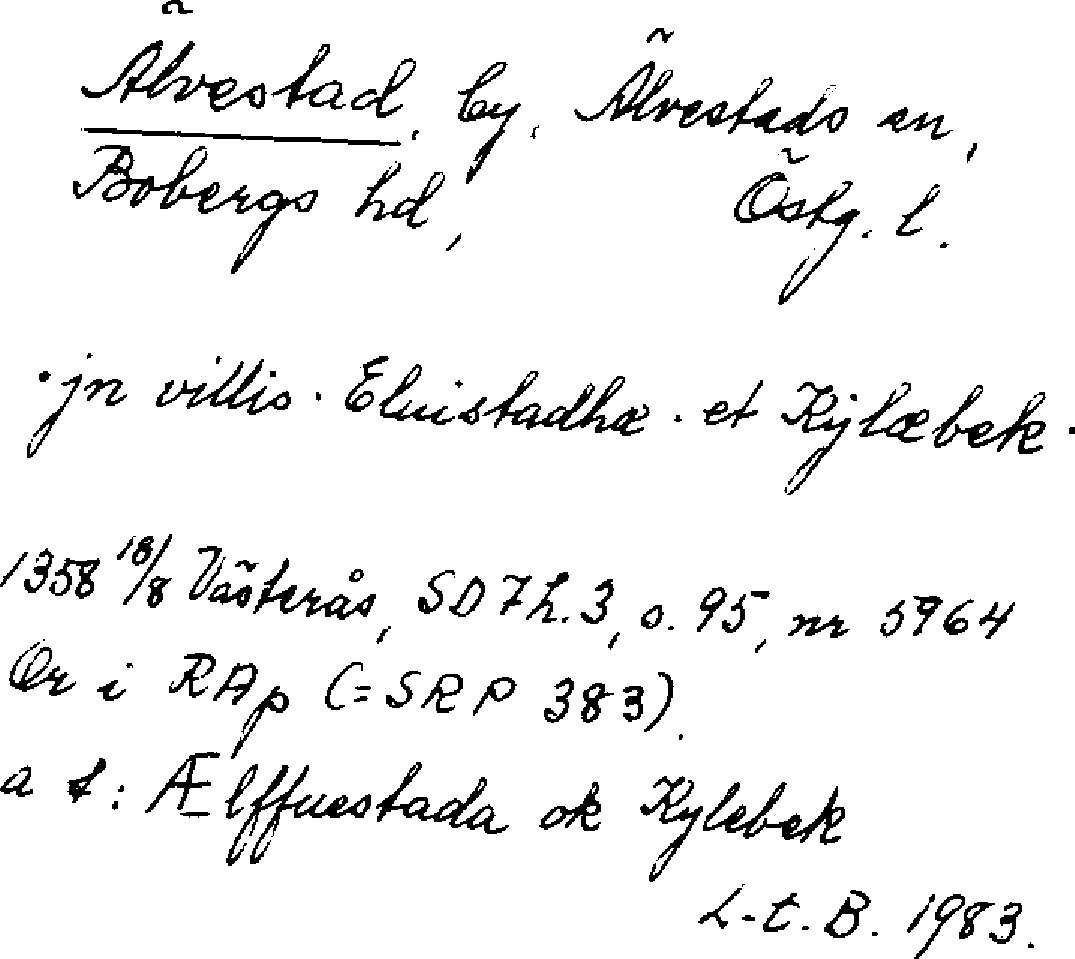 Älvestad, by, Älvestads sn,
Bobergs hd, Östg. l.
· jn villis · Eluistadhæ · et Kÿlæbek ·
1358 18/8 Västerås, SD 7 h. 3, s. 95, nr 5964
Or i RAp (= SRP 383).
a t : Ælffuestada ok Kylebek
L-t. B. 1983.